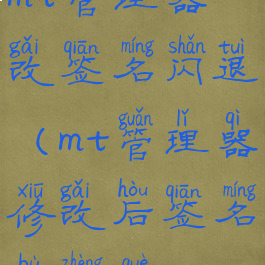 mt管理器
gǎi qiān míng shǎn tuì
改签名闪退
guǎn lǐ qì
(mt管理器
xiū gǎi hòu qiān míng
修改后签名
bù zhèng què